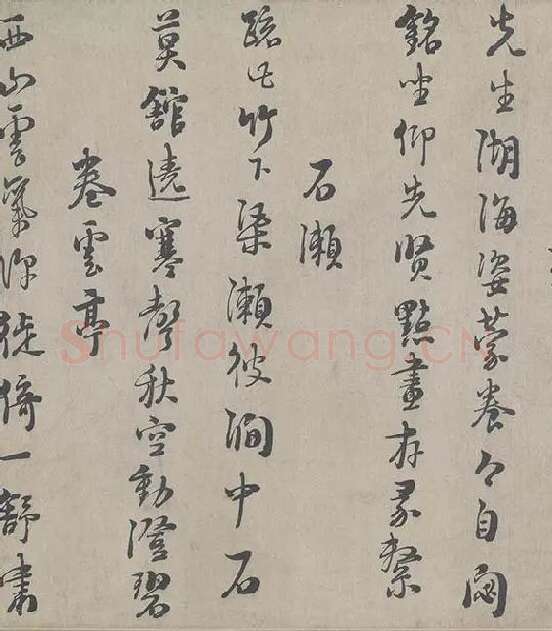 先生湖海姿蒙養今自閟
銘坐仰先賢點畫存彖繫
石瀨
疏此竹下渠瀨彼澗中石
莫館遶寒聲秋空動澄碧
卷雲亭
西山雲氣深徙倚一舒嘯
Shufawang.CN